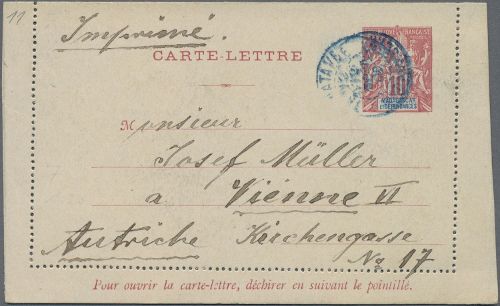 11
Imprimé.
CARTE-LETTRE
10
MADAGASCAR
ET DÉPENDANCES
Monsieur
Josef Müller
à Vienne VI
Autriche Kirchengasse
No 17
Pour ouvrir la carte-lettre, déchirer en suivant le pointillé.